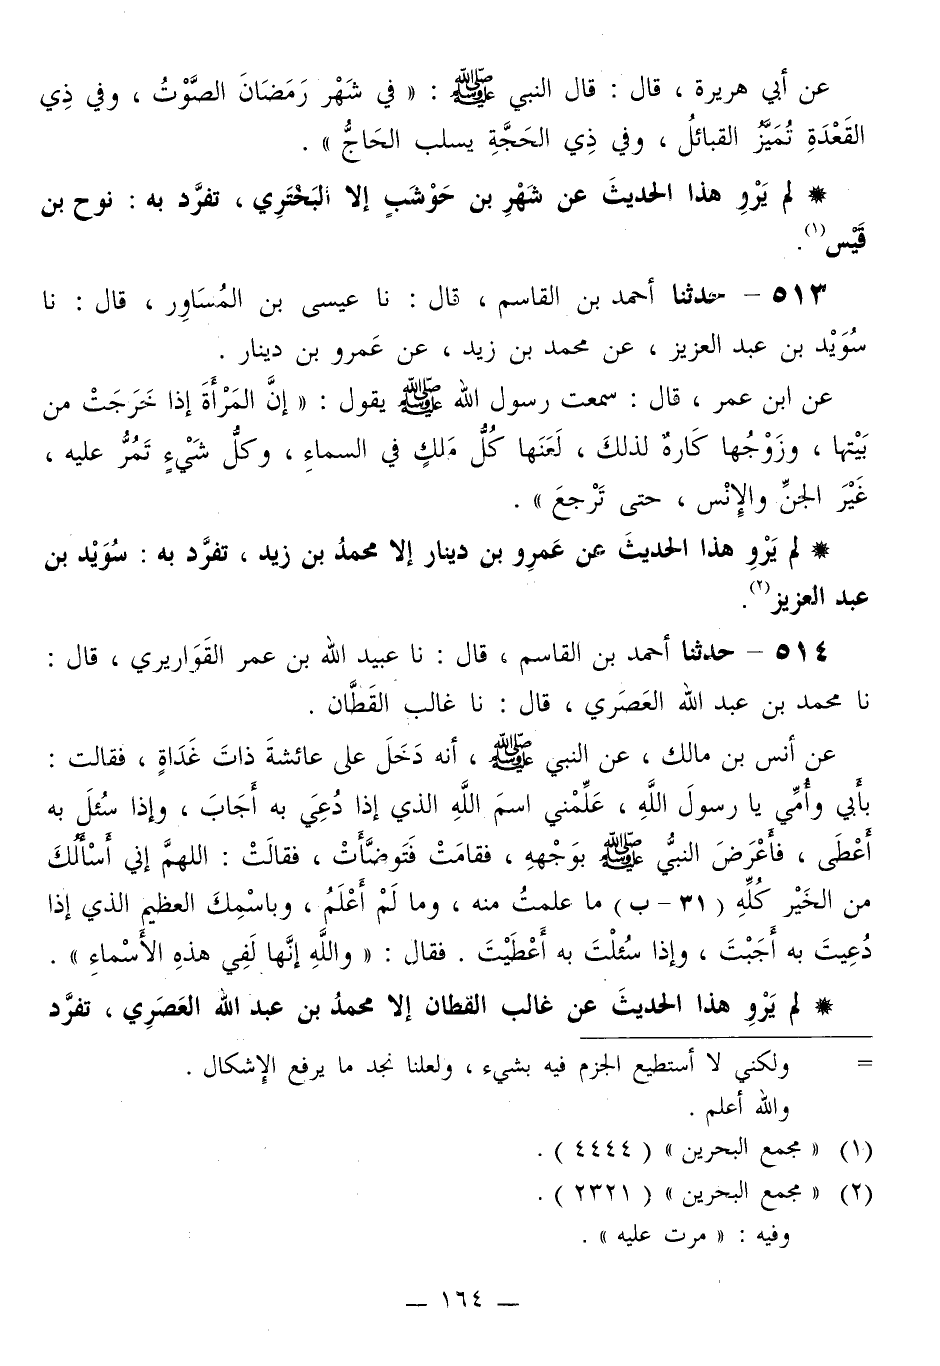 عن أبي هريرة ، قال : قال النبي ﷺ : « في شَهْر رَمَضَانَ الصَّوْتُ ، وفي ذِي
القَعْدَةِ تُمَيَّزُ القبائلُ ، وفي ذِي الحَجَّةِ يسلب الحَاجُّ » .
* لم يَرْوِ هذا الحديثَ عن شَهْرِ بن حَوْشَبٍ إلا البَخْتَرِي ، تفرَّد به : نوح بن
قَيْس(١).
٥١٣ – حدثنا أحمد بن القاسم ، قال : نا عيسى بن المُسَاوِر ، قال : نا
سُوَيْد بن عبد العزيز ، عن محمد بن زيد ، عن عَمرو بن دينار .
عن ابن عمر ، قال : سمعت رسول الله ﷺ يقول : « إنَّ المَرْأَةَ إذا خَرَجَتْ من
بَيْتها ، وزَوْجُها كَارهٌ لذلكَ ، لَعَنَها كُلُّ مَلكٍ في السماءِ ، وكلُّ شَيْءٍ تَمُرُّ عليه ،
غَيْرَ الجنِّ والإِنْس ، حتى تَرْجعَ » .
* لم يَرْوِ هذا الحديثَ عن عَمرِو بن دينار إلا محمدُ بن زيد ، تفرَّد به : سُوَيْد بن
عبد العزيز(٢).
٥١٤ – حدثنا أحمد بن القاسم ، قال : نا عبيد الله بن عمر القَوَاريري ، قال :
نا محمد بن عبد الله العَصَري ، قال : نا غالب القَطَّان .
عن أنس بن مالك ، عن النبي ﷺ ، أنه دَخَلَ على عائشةَ ذاتَ غَدَاةٍ ، فقالت :
بأَبي وأُمِّي يا رسولَ اللَّهِ ، عَلِّمْني اسمَ اللَّهِ الذي إذا دُعِيَ به أَجَابَ ، وإذا سُئلَ به
أَعْطَى ، فَأَعْرَضَ النبيُّ ﷺ بوَجْههِ ، فقامَتْ فَتَوضَّأَتْ ، فقالَتْ : اللهمَّ إني أَسْأَلُكَ
من الخَيْر كُلِّهِ ( ٣١ – ب ) ما علمتُ منه ، وما لَمْ أَعْلَمُ ، وباسْمِكَ العظيم الذي إذا
دُعِيتَ به أَجَبْتَ ، وإذا سُئلْتَ به أَعْطَيْتَ . فقال : « واللَّهِ إنَّها لَفِي هذهِ الأَسْماءِ » .
* لم يَرْوِ هذا الحديثَ عن غالب القطان إلا محمدُ بن عبد الله العَصَرِي ، تفرَّد
= ولكني لا أستطيع الجزم فيه بشيء ، ولعلنا نجد ما يرفع الإِشكال .
والله أعلم .
(١) « مجمع البحرين » ( ٤٤٤٤ ) .
(٢) « مجمع البحرين » ( ٢٣٢١ ) .
وفيه : « مرت عليه » .
— ١٦٤ —